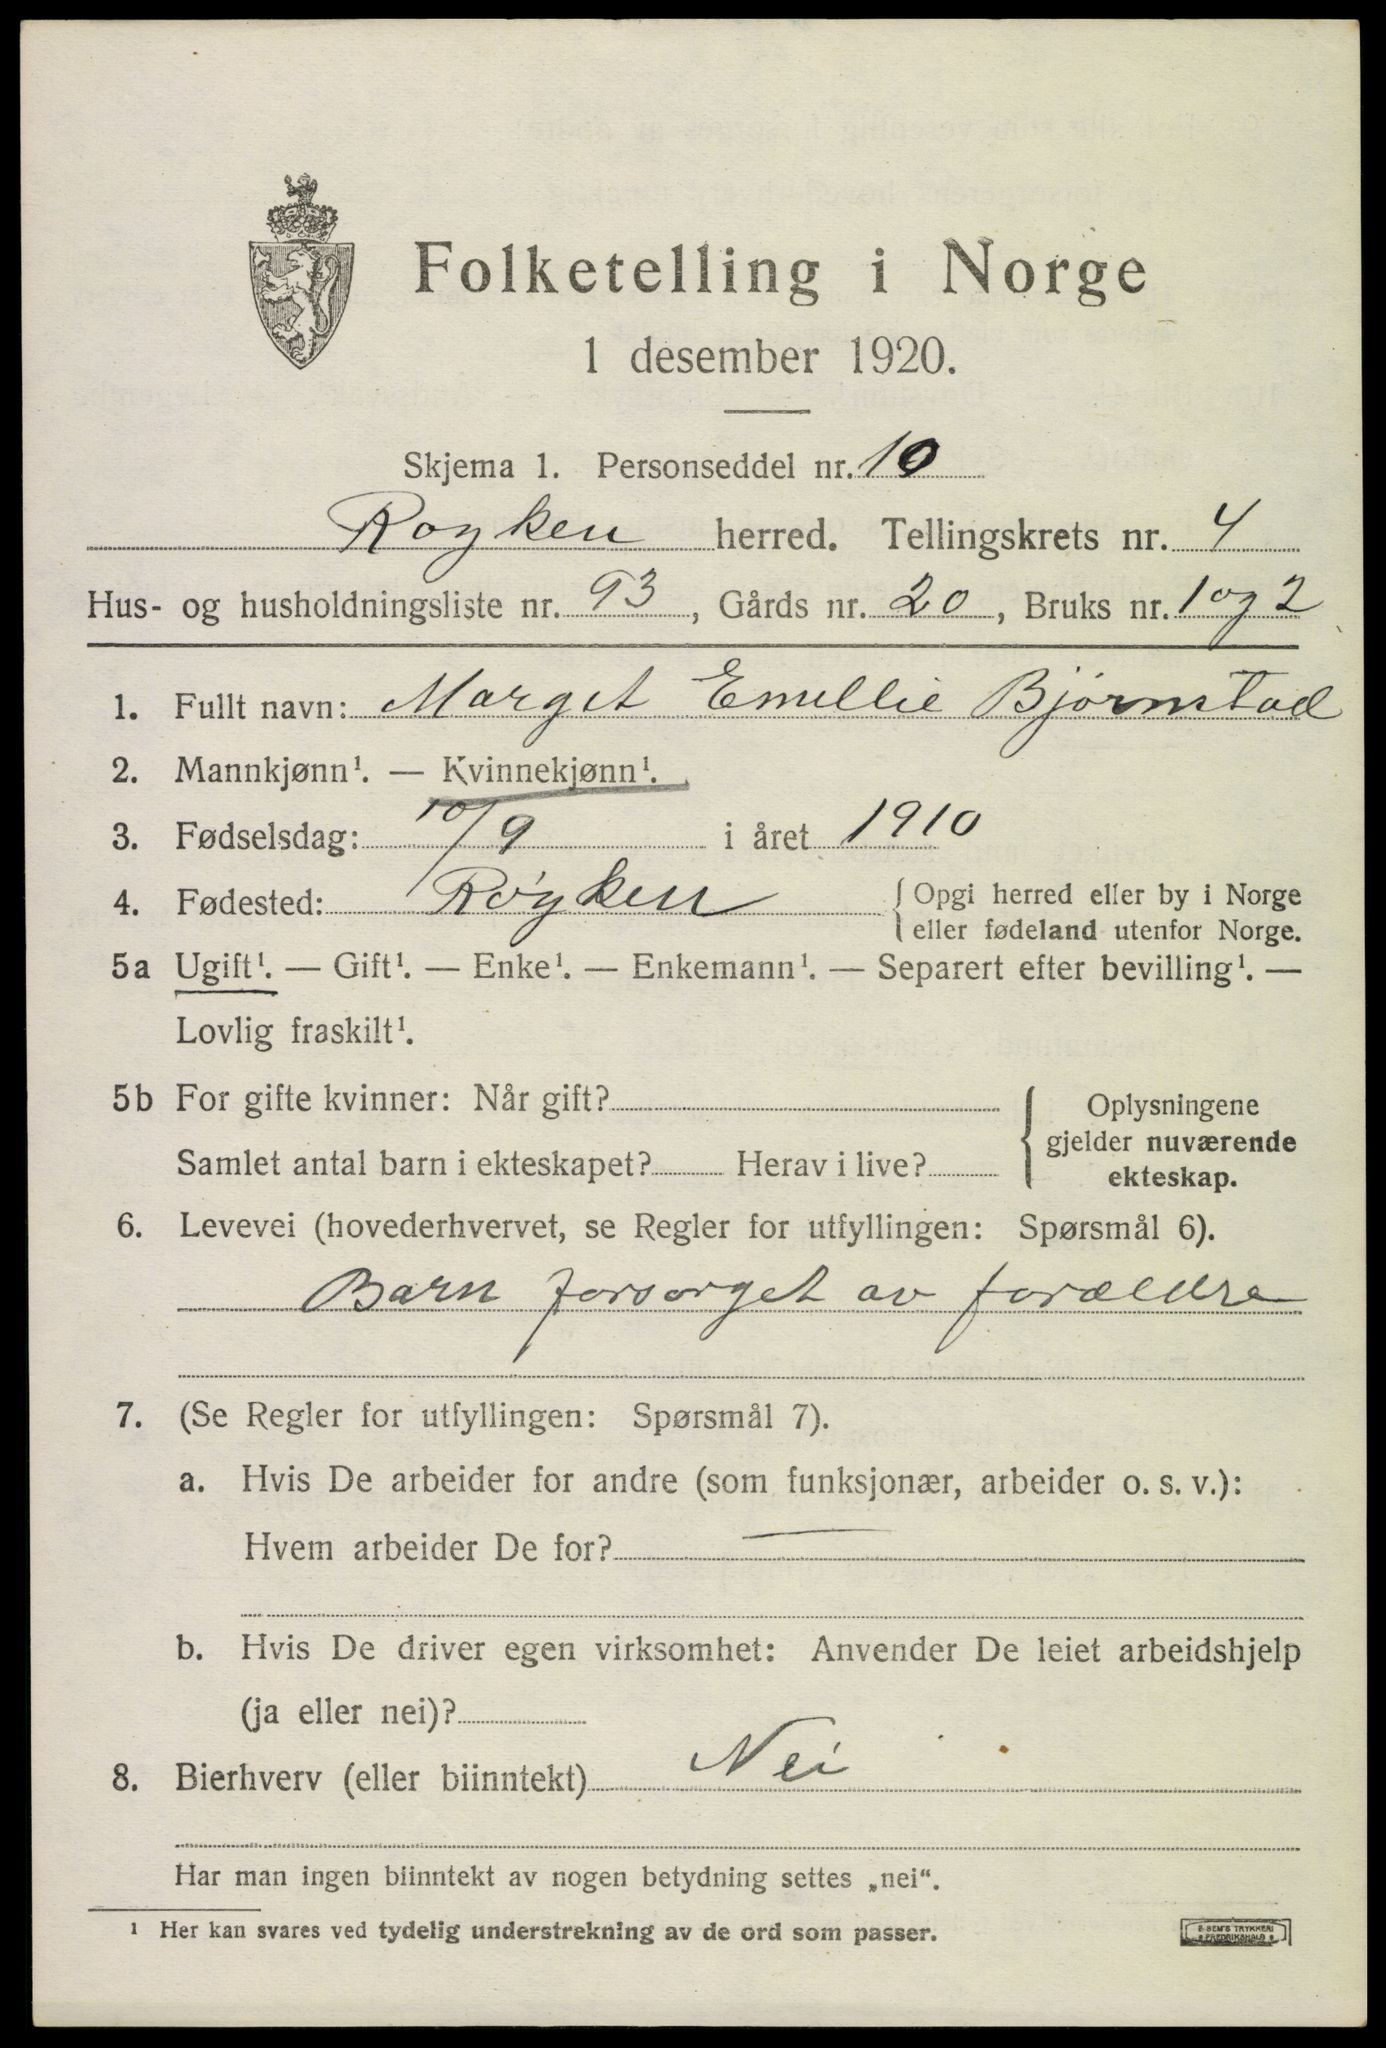 Folketelling i Norge
1 desember 1920.
Skjema 1. Personseddel nr. 10
Royken herred. Tellingskrets nr. 4
Hus- og husholdningsliste nr. 93, Gårds nr. 20, Bruks nr. 1 og 2
1. Fullt navn: Marget Emellie Bjørnstad
2. Mannkjønn¹. — Kvinnekjønn¹.
3. Fødselsdag: 10/9 i året 1910
4. Fødested: Røyken { Opgi herred eller by i Norge
eller fødeland utenfor Norge.
5a Ugift¹. — Gift¹. — Enke¹. — Enkemann¹. — Separert efter bevilling¹. —
Lovlig fraskilt¹.
5b For gifte kvinner: Når gift? { Oplysningene
gjelder nuværende
Samlet antal barn i ekteskapet? Herav i live? ekteskap.
6. Levevei (hovederhvervet, se Regler for utfyllingen: Spørsmål 6).
Barn forsorget av forældre
7. (Se Regler for utfyllingen: Spørsmål 7).
a. Hvis De arbeider for andre (som funksjonær, arbeider o. s. v.):
Hvem arbeider De for? —
b. Hvis De driver egen virksomhet: Anvender De leiet arbeidshjelp
(ja eller nei)?
8. Bierhverv (eller biinntekt) Nei
Har man ingen biinntekt av nogen betydning settes „nei“.
¹ Her kan svares ved tydelig understrekning av de ord som passer.
E SEM'S TRYKKERI
FREDRIKSHALD